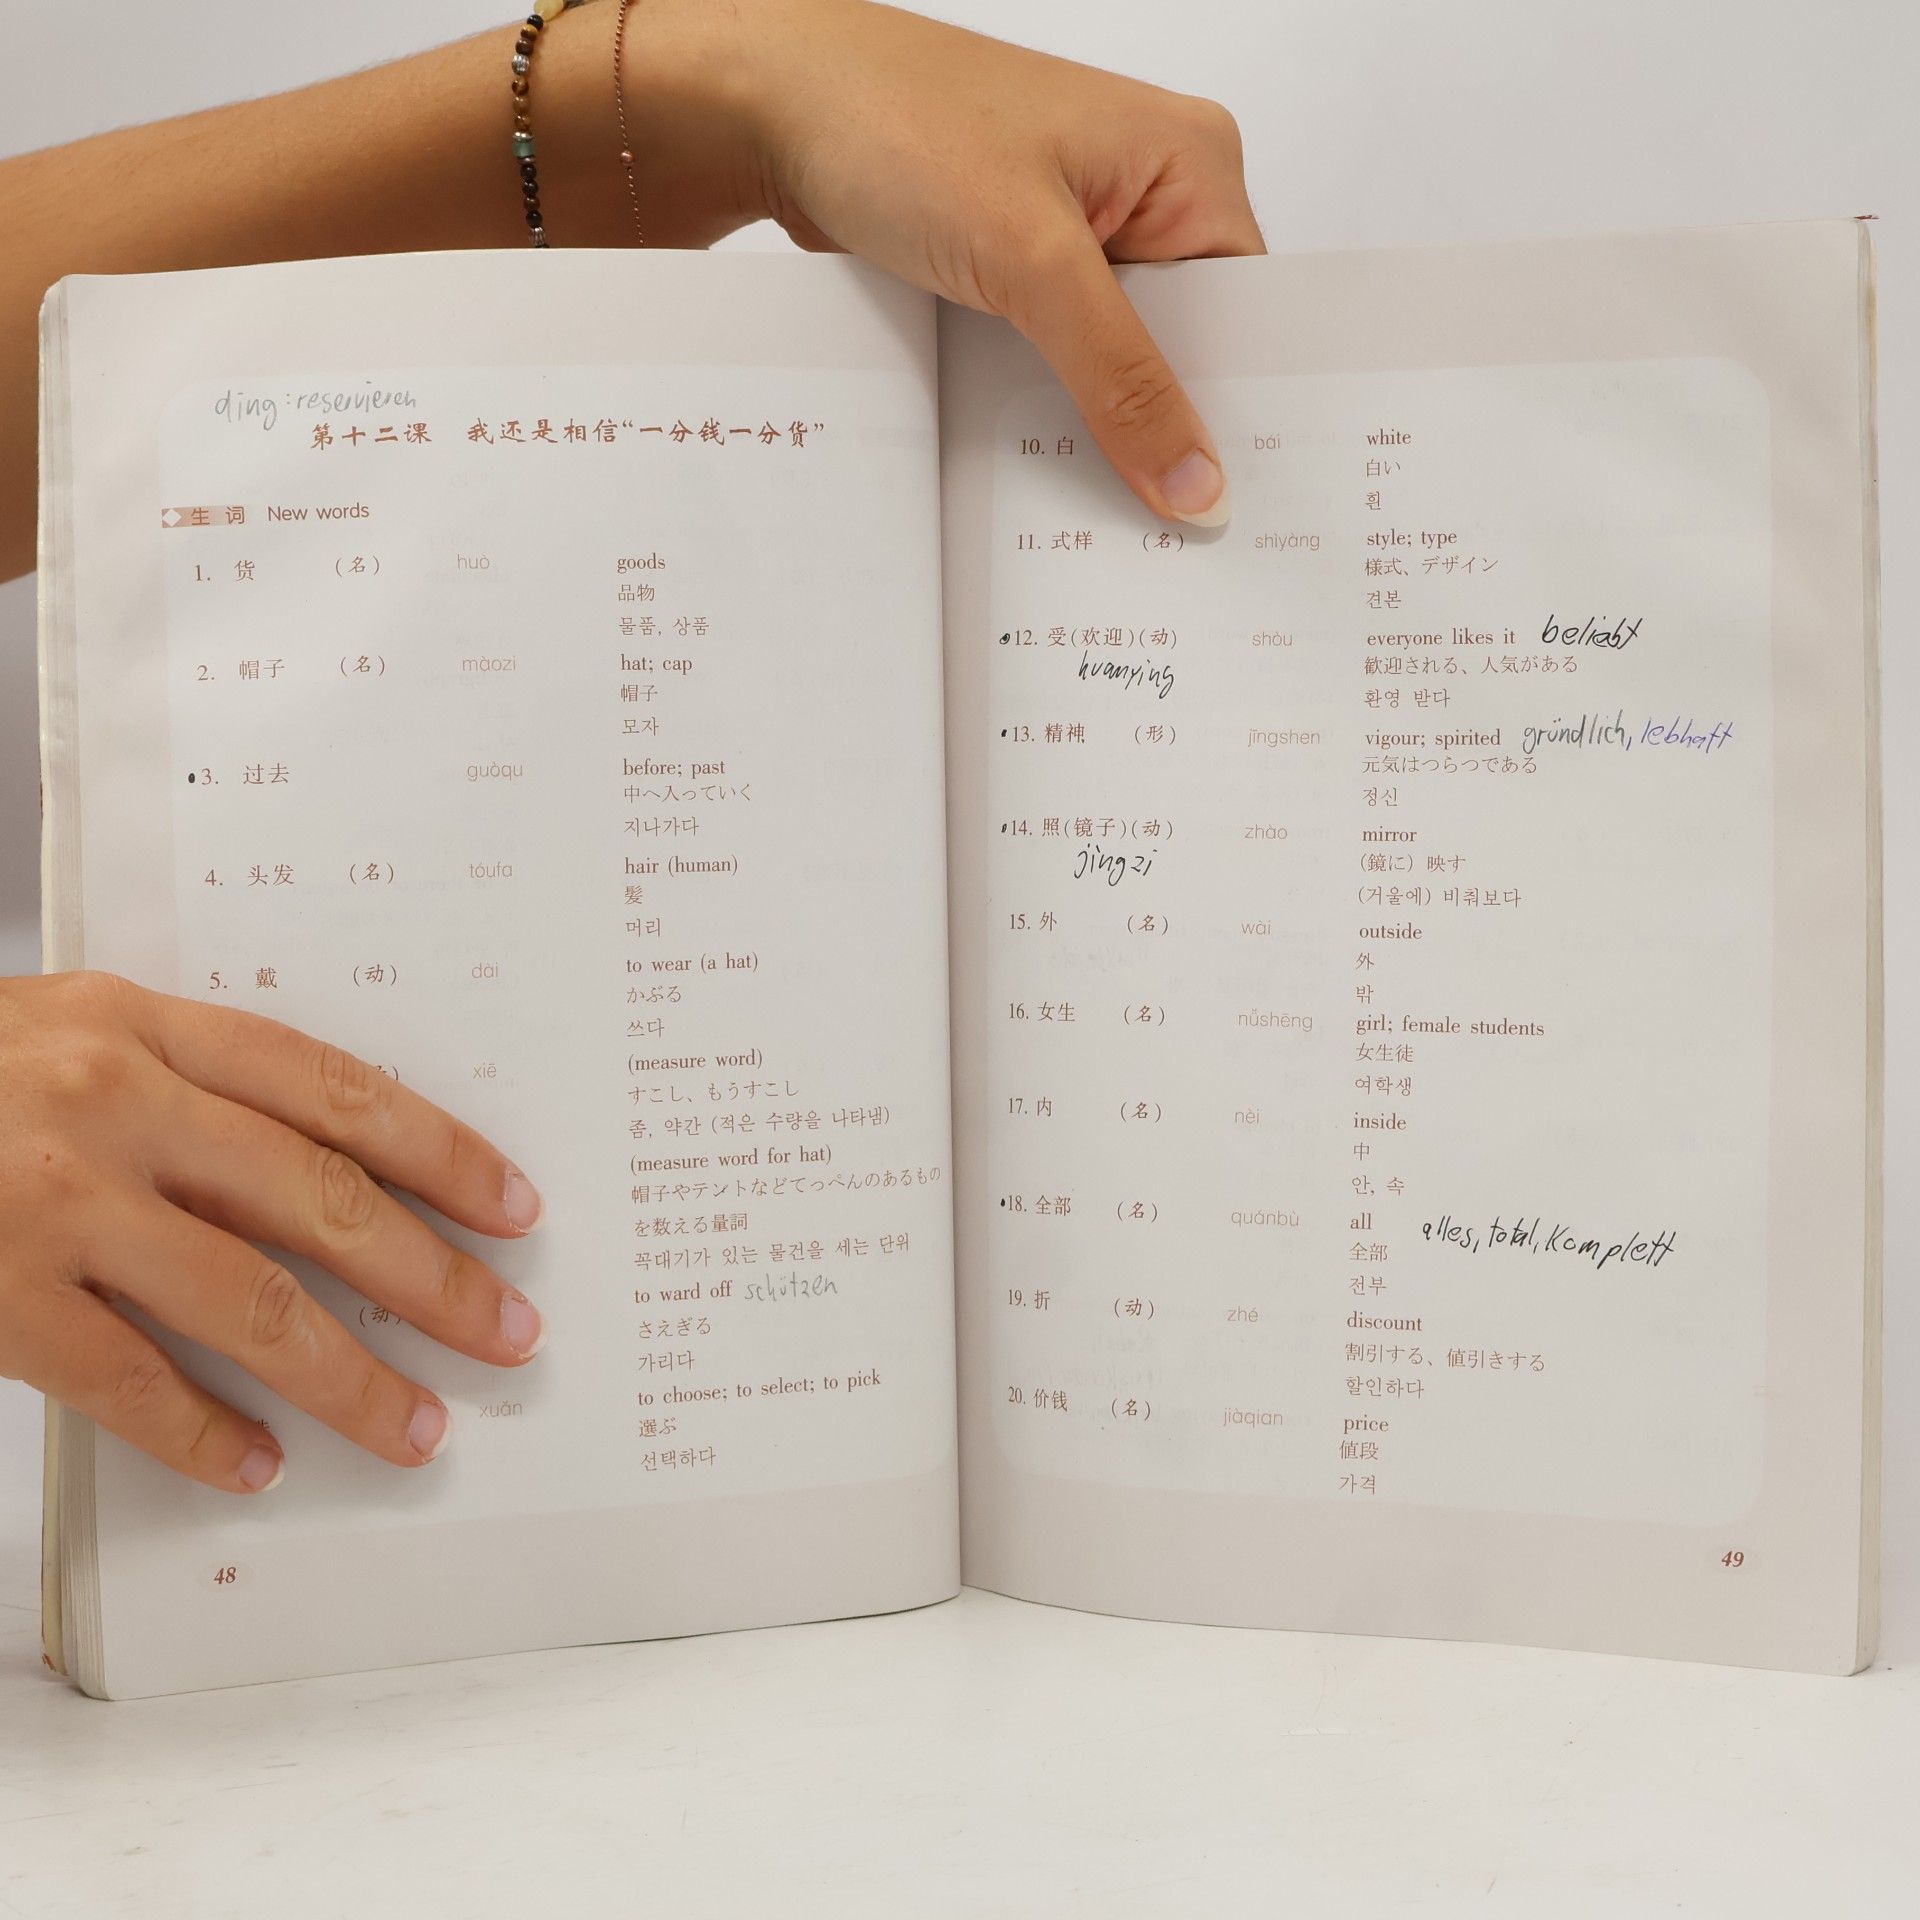 ding: reservieren
第十二课 我还是相信“一分钱一分货”
生 词 New words
1. 货 (名) huò goods
品物
물품, 상품
2. 帽子 (名) màozi hat; cap
帽子
모자
3. 过去 guòqu before; past
中へ入っていく
지나가다
4. 头发 (名) tóufa hair (human)
髪
머리
5. 戴 (动) dài to wear (a hat)
かぶる
쓰다
xiē (measure word)
すこし、もうすこし
좀, 약간 (적은 수량을 나타냄)
(measure word for hat)
帽子やテントなどてっぺんのあるもの
を数える量詞
꼭대기가 있는 물건을 세는 단위
(动) to ward off schützen
さえぎる
가리다
xuǎn to choose; to select; to pick
選ぶ
선택하다
48
10. 白 bái white
白い
흰
11. 式样 (名) shìyàng style; type
様式、デザイン
견본
12. 受(欢迎)(动) shòu everyone likes it beliebt
huanying 歓迎される、人気がある
환영 받다
13. 精神 (形) jīngshen vigour; spirited gründlich, lebhaft
元気はつらつである
정신
14. 照(镜子)(动) zhào mirror
jìngzi (鏡に) 映す
(거울에) 비춰보다
15. 外 (名) wài outside
外
밖
16. 女生 (名) nǚshēng girl; female students
女生徒
여학생
17. 内 (名) nèi inside
中
안, 속
18. 全部 (名) quánbù all alles, total, komplett
全部
전부
19. 折 (动) zhé discount
割引する、値引きする
할인하다
20. 价钱 (名) jiàqian price
値段
가격
49